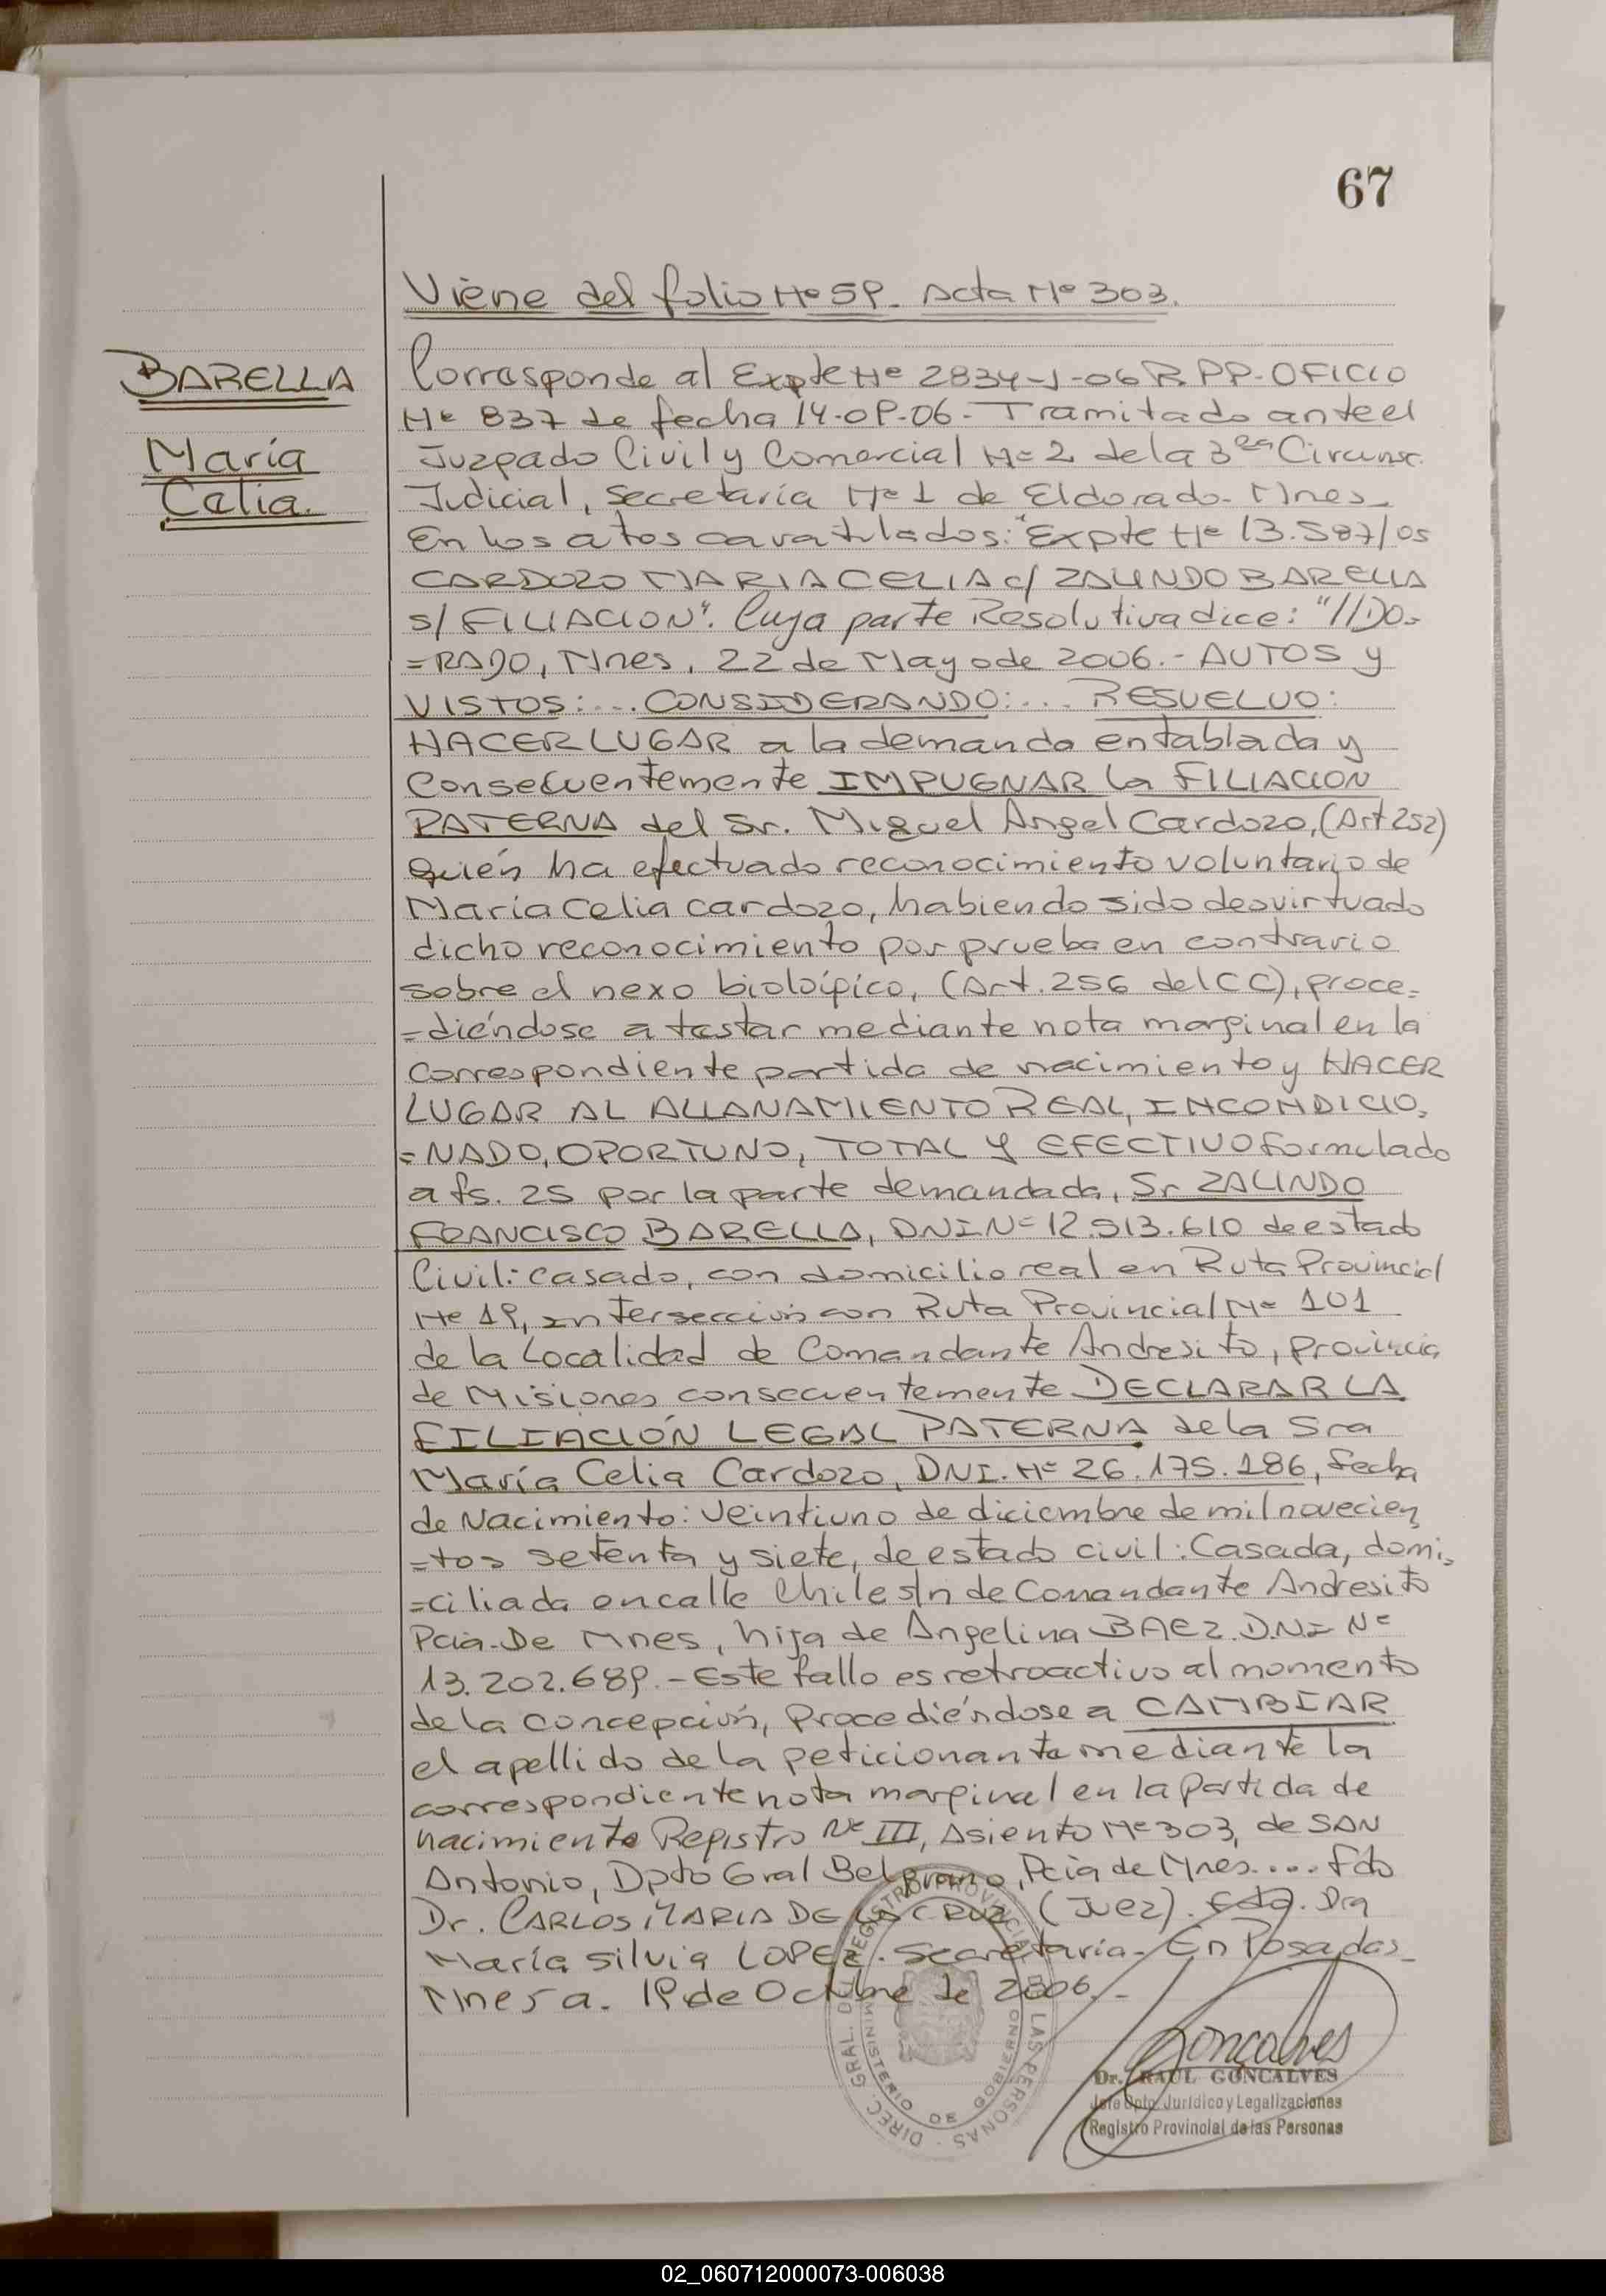 67
Viene del folio Nº 59. Acta Nº 303.
BARELLA
María
Celia.
Corresponde al Expte Nº 2834-J-06 R.PP-OFICIO
Nº 837 de fecha 14-09-06- Tramitado ante el
Juzgado Civil y Comercial Nº 2 de la 3era Circunsc.
Judicial, Secretaría Nº 1 de Eldorado- Mnes-
En los atos caratulados: "Expte Nº 13.587/05
CARDOZO MARIA CELIA c/ ZALINDO BARELLA
s/ FILIACION". Cuya parte Resolutiva dice: "//DO-
=RADO, Mnes, 22 de Mayo de 2006.- AUTOS y
VISTOS:... CONSIDERANDO:... RESUELVO:
HACER LUGAR a la demanda entablada y
Consecuentemente IMPUGNAR la FILIACION
PATERNA del Sr. Miguel Angel Cardozo, (Art 252)
quién ha efectuado reconocimiento voluntario de
María Celia Cardozo, habiendo sido desvirtuado
dicho reconocimiento por prueba en contrario
sobre el nexo biológico, (Art. 256 del CC), proce=
=diéndose a testar mediante nota marginal en la
correspondiente partida de nacimiento y HACER
LUGAR AL ALLANAMIENTO REAL, INCONDICIO=
=NADO, OPORTUNO, TOTAL Y EFECTIVO formulado
a fs. 25 por la parte demandada, Sr ZALINDO
FRANCISCO BARELLA, DNI Nº 12.513.610 de estado
Civil: casado, con domicilio real en Ruta Provincial
Nº 19, Intersección con Ruta Provincial Nº 101
de la Localidad de Comandante Andresito, provincia
de Misiones consecuentemente DECLARAR LA
FILIACIÓN LEGAL PATERNA de la Sra
María Celia Cardozo, DNI. Nº 26.175.186, fecha
de Nacimiento: Veintiuno de diciembre de mil novecien
=tos setenta y siete, de estado civil: Casada, domi=
=ciliada en calle Chile s/n de Comandante Andresito
Pcia. De Mnes, hija de Angelina BAEZ. D.N.I Nº
13.202.689.- Este fallo es retroactivo al momento
de la concepción, Procediéndose a CAMBIAR
el apellido de la peticionante mediante la
correspondiente nota marginal en la partida de
nacimiento Registro Nº III, Asiento Nº 303, de SAN
Antonio, Dpto Gral Belgrano, Pcia de Mnes.... Fdo
Dr. CARLOS MARIA DE LA CRUZ (Juez). Fdo. Dra
María Silvia LOPEZ. Secretaría- En Posadas-
Mnes a. 19 de Octubre de 2006.-
DIREC. GRAL. DEL REGISTRO PROVINCIAL DE LAS PERSONAS
MINISTERIO DE GOBIERNO
Goncalves
Dr. RAUL GONCALVES
Jefe Dpto. Jurídico y Legalizaciones
Registro Provincial de las Personas
02_060712000073-006038